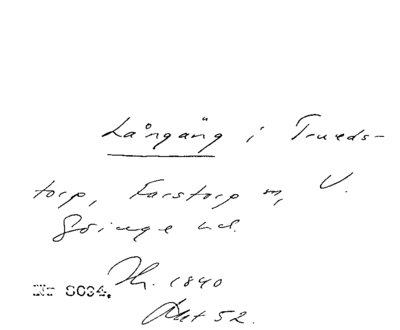 Långäng i Trueds-
torp, Farstorp sn, V.
Göinge hd.
Nr 8034. Th. 1840
Akt 52.